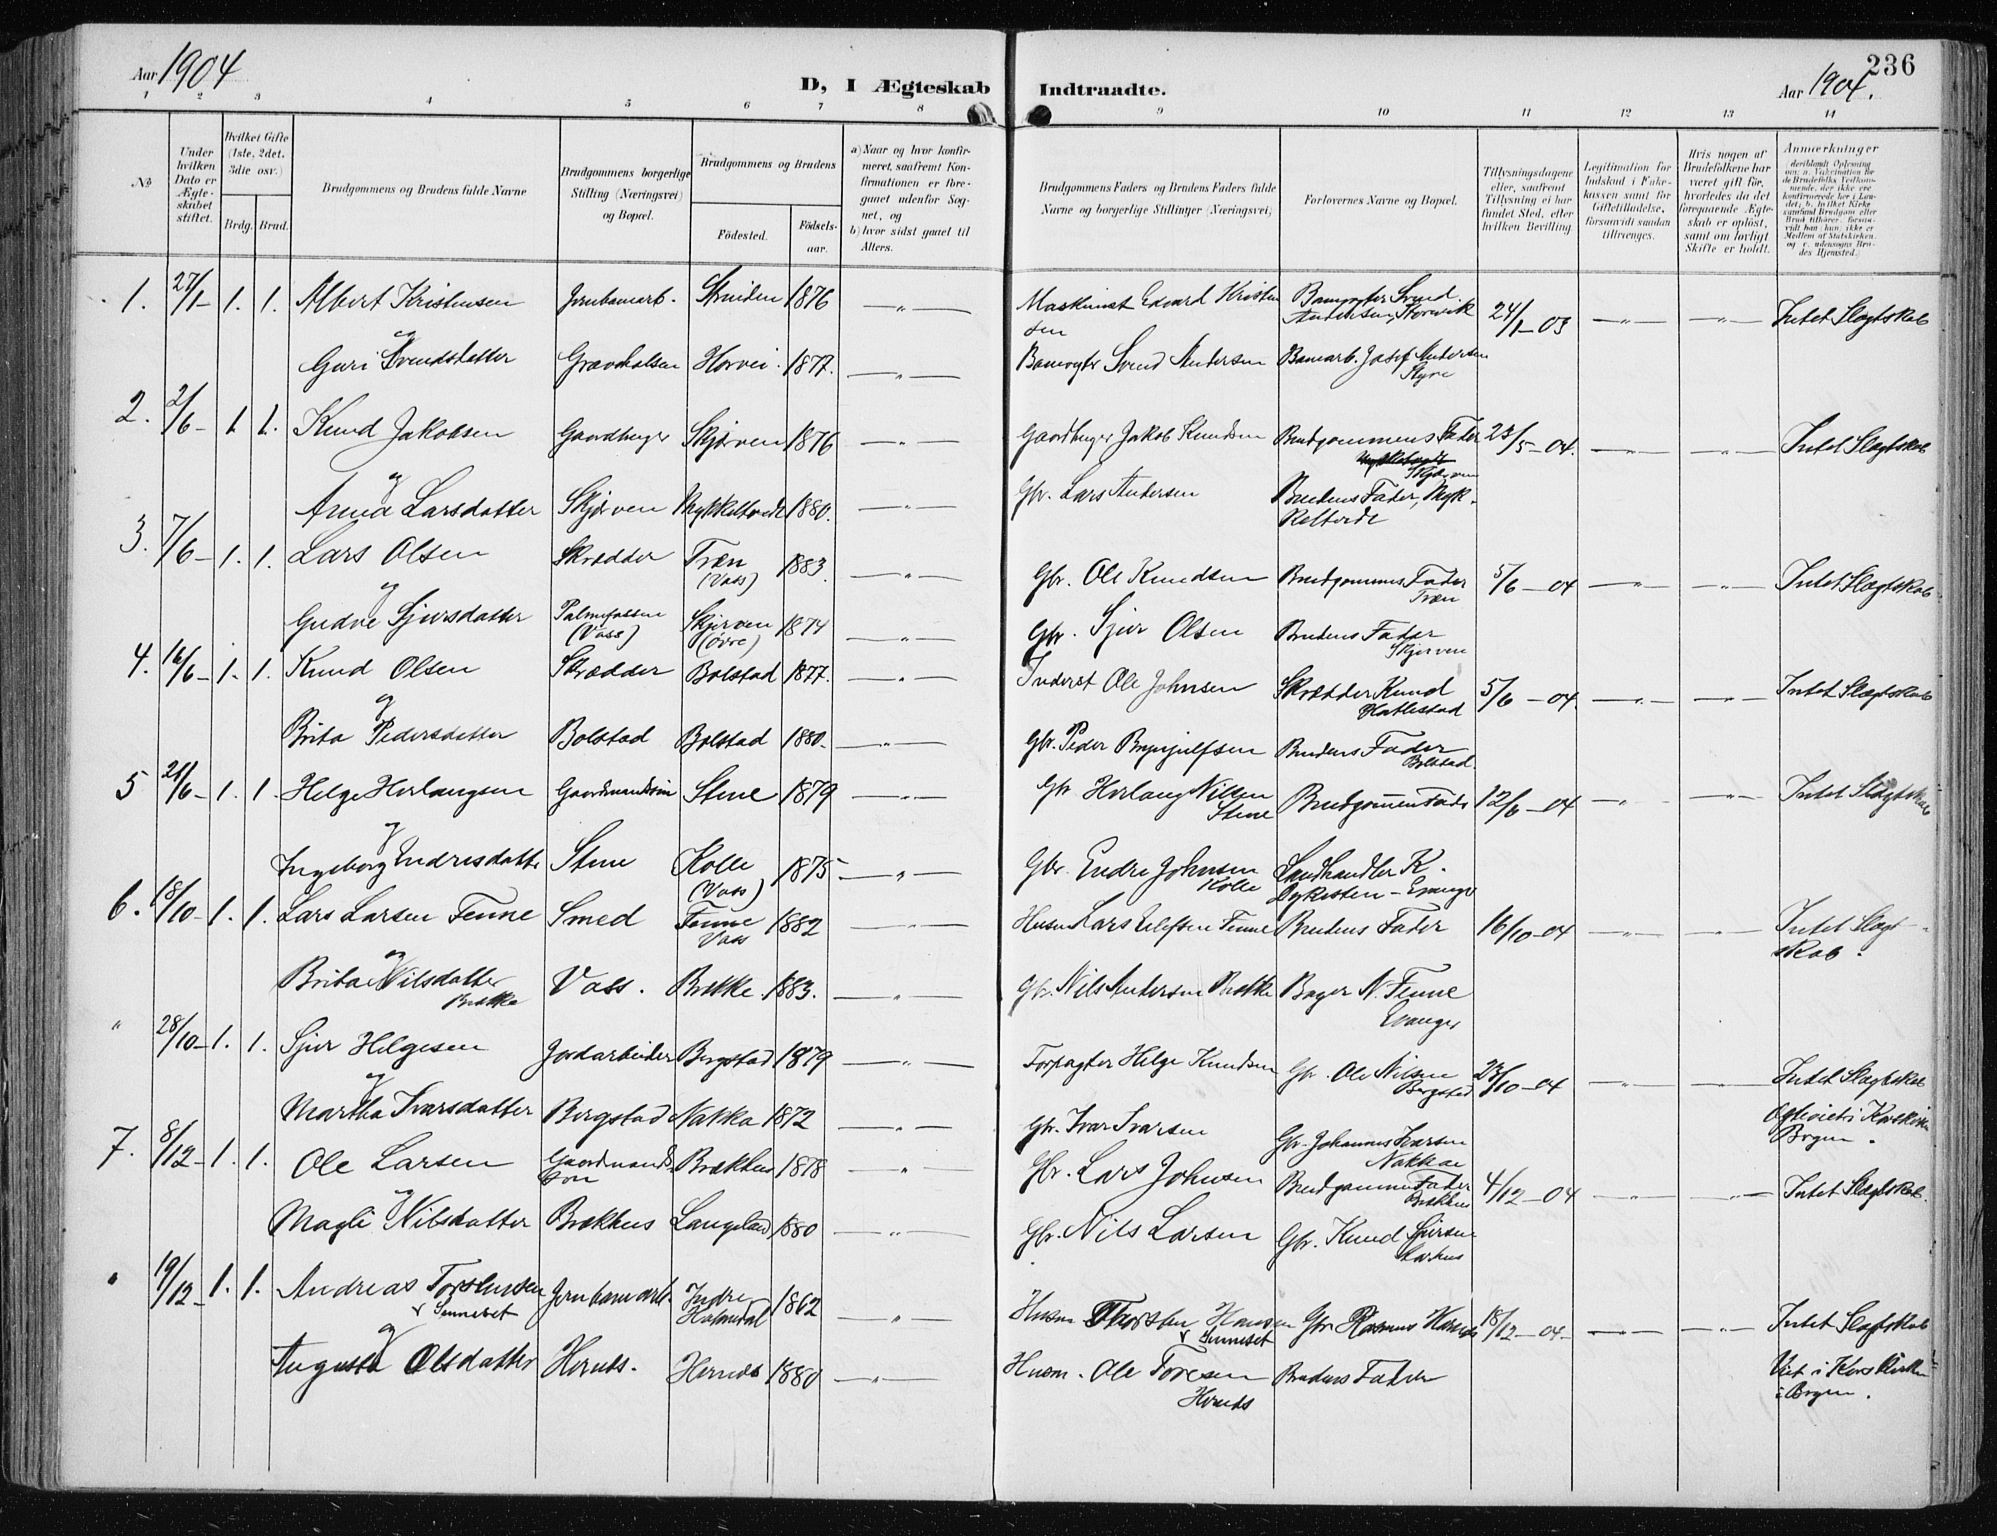 Aar 1904
D, I Ægteskab Indtraadte.
236
Aar 1904.
1 2 3 4 5 6 7 8 9 10 11 12 13 14
No
Under hvilken Dato er Ægteskabet stiftet.
Hvilket Gifte (1ste, 2det, 3die osv.)
Brdg. Brud.
Brudgommens og Brudens fulde Navne
Brudgommens borgerlige Stilling (Næringsvei) og Bopæl.
Brudgommens og Brudens
Fødested.
Fødselsaar.
a) Naar og hvor konfirmeret, saafremt Konfirmationen er foregaaet udenfor Sognet, og
b) hvor sidst gaaet til Alters.
Brudgommens Faders og Brudens Faders fulde Navne og borgerlige Stillinger (Næringsvei)
Forlovernes Navne og Bopæl.
Tillysningsdagene eller, saafremt Tillysning ei har fundet Sted, efter hvilken Bevilling.
Legitimation for Indskud i Enkekassen samt for Giftetilladelse, forsaavidt saadan tiltrænges.
Hvis nogen af Brudefolkene har været gift før, hvorledes da det foregaaende Ægteskab er opløst, samt om lovligt Skifte er holdt.
Anmærkninger
1. 27/1- 1. 1. Albert Kristensen Jernbanearb. 1876 Maskinist Edvard Kristensen Banevogter Svend Andersen, Storvik 24/1-03 Intet Slægtskab
og
Guri Svendsdatter Gravehalsen Horvei. 1877. Banevogter Svend Andersen Banearb. Josef Andersen Styve
2. 2/6- 1 1. Knud Jakobsen Gaardbruger Skjerven 1876 Gaardbruger Jakob Knudsen Brudgommens Fader Skjerven 23/5-04. Intet Slægtskab
og
Anna Larsdatter Skjerven Mykkeltvedt 1880. Gbr. Lars Andersen Brudens Fader, Mykkeltvedt
3. 7/6- 1. 1. Lars Olsen Skrædder Træn (Vass) 1883. Gbr. Ole Knudsen Brudgommens Fader Træn 5/6-04 Intet Slægtskab
og
Gudve Sjursdatter Palmafossen (Vass) Skjerven (Øvre) 1874 Gbr. Sjur Olsen Brudens Fader Skjerven
4. 16/6- 1. 1. Knud Olsen Skrædder Bolstad 1877. Inderst Ole Johnsen Skrædder Knud Hatlestad 5/6-04. Intet Slægtskab
og
Brita Pedersdatter Bolstad Bolstad 1880. Gbr. Peder Brynjulfsen Brudens Fader Bolstad.
5 21/6- 1. 1. Helge Herlaugsen Gaardmandssøn Stene 1879 Gbr Herlaug Nilsen Stene Brudgommens Fader 12/6-04 Intet Slægtskab
og
Ingeborg Endresdatter Stene Kolle (Vass) 1875 Gbr. Endre Johnsen Kolle Landhandler K. Dykesten - Evanger
6. 18/10- 1. 1. Lars Larsen Fenne Smed Fenne Vass 1882 Husm Lars Eilefsen Fenne Brudens Fader 16/10-04 Intet Slægtskab.
og
Brita Nilsdatter Brække Vass. Brekke. 1883. Gbr. Nils Andersen Brække Bager N. Fenne Evanger
" 28/10- 1. 1. Sjur Helgesen Jordarbeider Bergstad 1879 Forpagter Helge Knudsen Gbr. Ole Nilsen Bergstad 23/10-04 Intet Slægtskab
og
Martha Ivarsdatter Bergstad Nakka 1872 Gbr. Ivar Ivarsen Gbr. Johannes Ivarsen Nakka Bergen.
7. 8/12- 1. 1. Ole Larsen Gaardmands Søn Brækhus 1878 Gbr. Lars Johnsen Brudgommens Fader Brækhus 4/12-04 Intet Slægtskab
og
Magli Nilsdatter Brækhus Langeland 1880 Gbr. Nils Larsen Gbr. Knud Sjursen
" 19/12- 1. 1. Andreas Torstensen Jernbanearb. Indre Holmedal 1862 Husm Thorsten Hansen Gbr Rasmus 18/12-04- Intet Slægtskab
og
Augusta Olsdatter Hernes. Hernes 1880 Husm. Ole Toresen Hernes Brudens Fader Viet i Korskirken i Bergen.